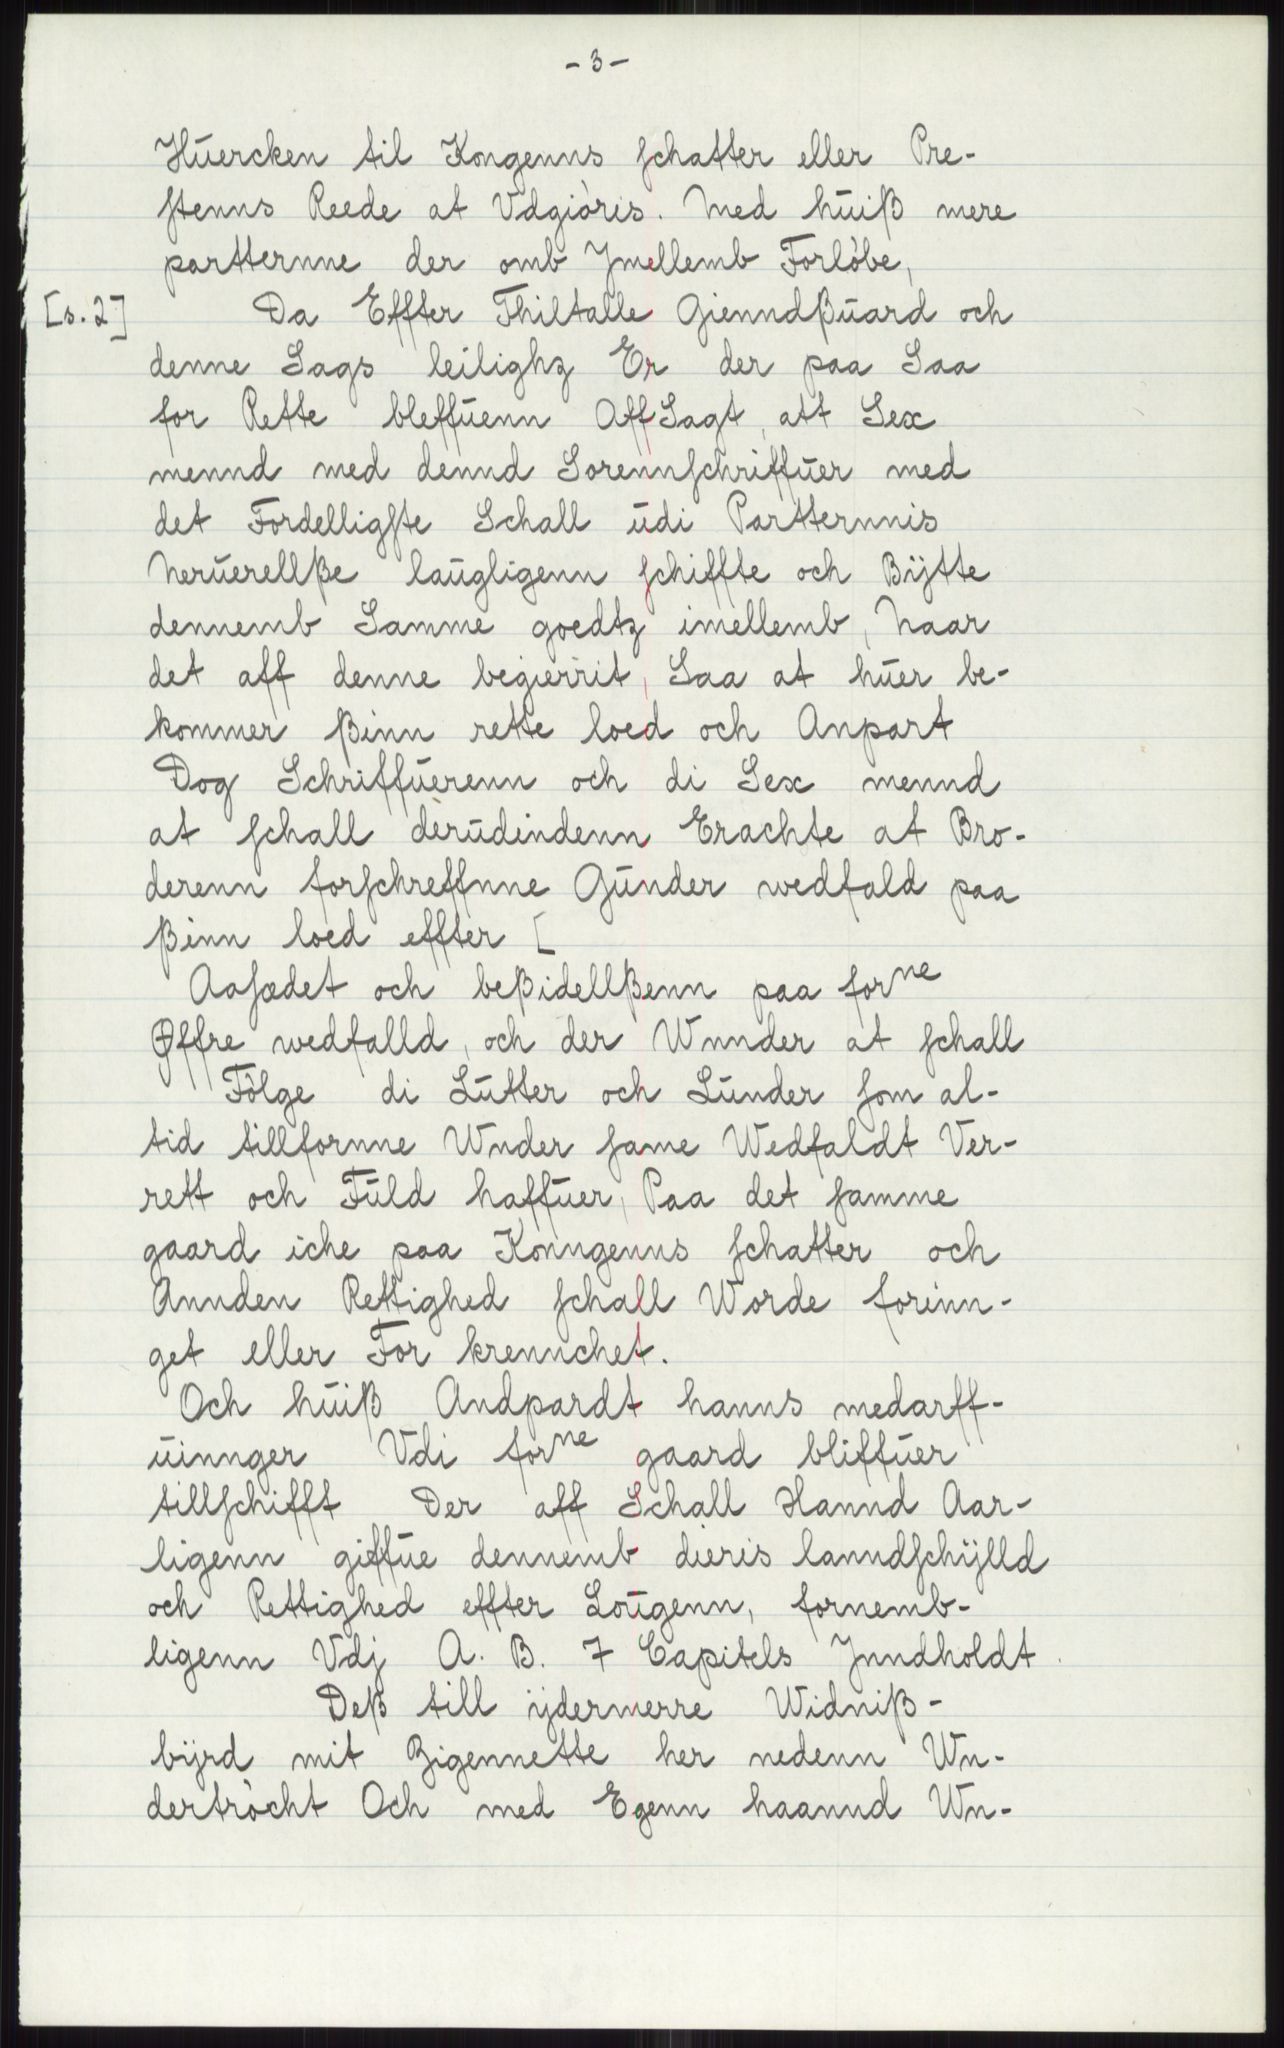 - 3 -
Huercken til Kongenns schatter eller Pre-
stenns Reede at Vdgiöris. Med huiß mere
partternne der omb Jmellemb Forlöbe,
[s. 2] Da Effter Thiltalle Gienndßuard och
denne Sags leilighz Er der paa Saa
for Rette bleffuenn Aff Sagt, att Sex
mennd med dennd Sorennschriffuer med
det Fordelligste Schall udi Partternnis
Neruerellße laugligenn schiffte och Bÿtte
dennemb Samme goedtz imellemb, Naar
det aff denne begierrit, Saa at huer be-
kommer ßinn rette loed och Anpart
Dog Schriffuerenn och di Sex mennd
at schall derudindenn Erachte at Bro-
derenn forschreffnne Gunder wedfald paa
ßinn loed effter [
Aasædet och beßidellßenn paa forne
Øffre wedfalld, och der Wnnder at schall
Fölge di Lutter och Lunder som al-
tid tillfornne Wnder same Wedfaldt Ver-
rett och Fuld haffuer, Paa det samme
gaard iche paa Konngenns schatter och
Annden Rettighed schall Worde forinn-
get eller For krennchet.
Och huiß Andpardt hanns medarff-
uinnger Vdi forne gaard bliffuer
tillschifft Der aff Schall Hannd Aar-
ligenn giffue dennemb dieris lanndschÿlld
och Rettighed effter Lougenn, fornemb-
ligenn Vdj A. B. 7 Capitels Jnndholdt
Deß till ÿdermerre Widniß-
bÿrd mit Zigennette her nedenn Wn-
dertröcht Och med Egenn haannd Wn-